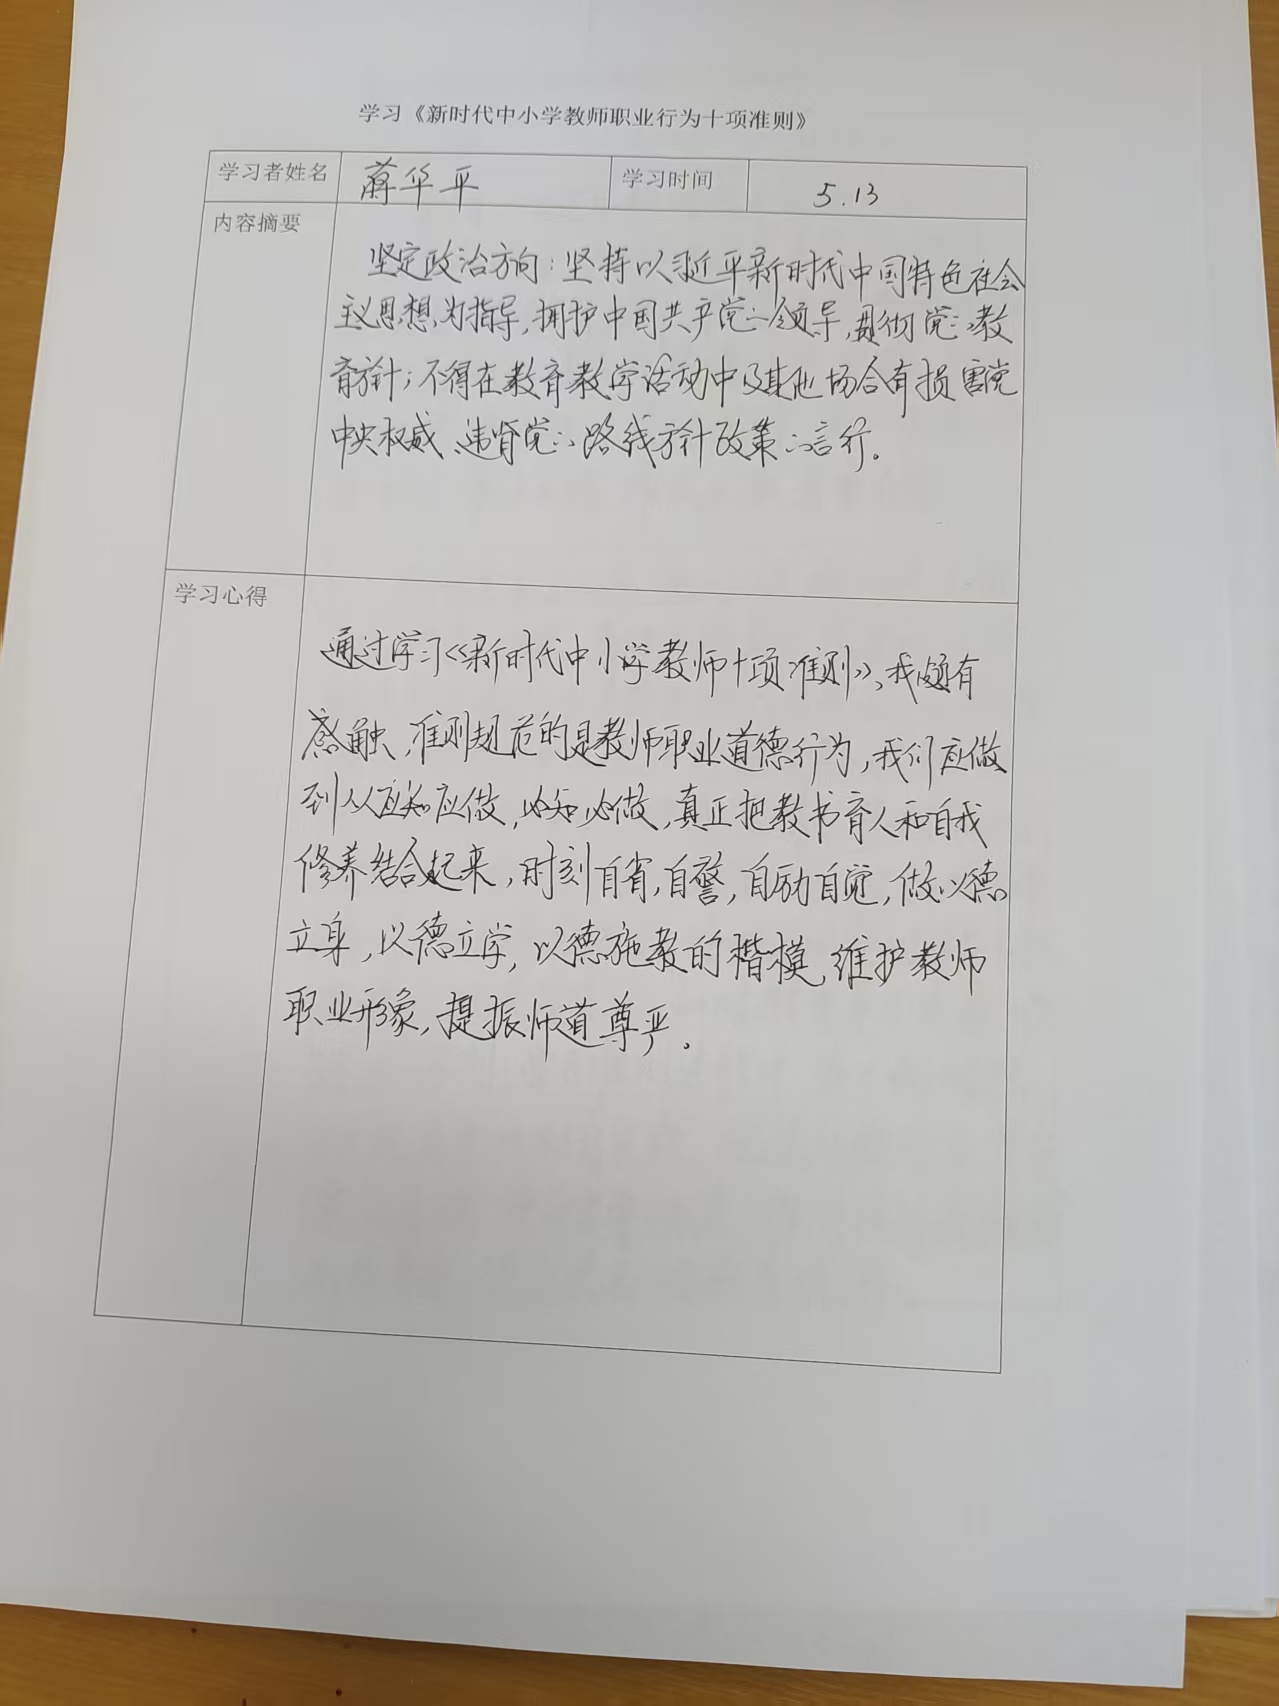 学习《新时代中小学教师职业行为十项准则》
学习者姓名 蒋华平 学习时间 5.13
内容摘要
坚定政治方向：坚持以习近平新时代中国特色社会
主义思想为指导，拥护中国共产党的领导，贯彻党的教
育方针；不得在教育教学活动中及其他场合有损害党
中央权威、违背党的路线方针政策的言行。
学习心得
通过学习《新时代中小学教师十项准则》，我颇有
感触，准则规范的是教师职业道德行为，我们应做
到从应知应做，必知必做，真正把教书育人和自我
修养结合起来，时刻自省，自警，自励自觉，做以德
立身，以德立学，以德施教的楷模，维护教师
职业形象，提振师道尊严。